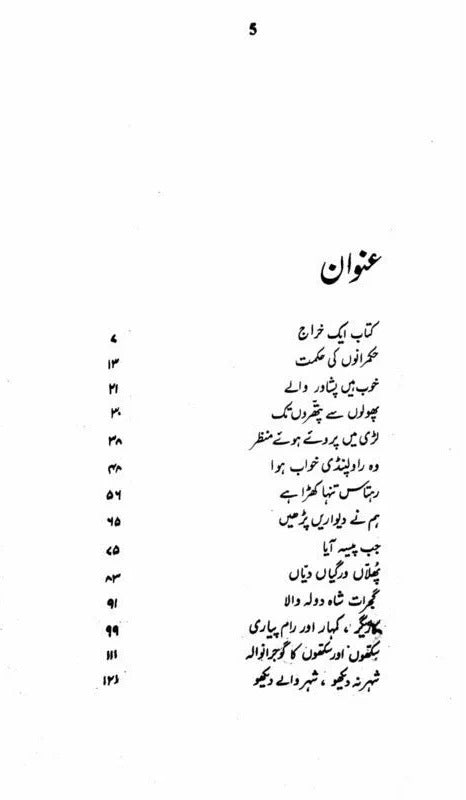 5
عنوان
کتاب ایک خراج ۷
حکمرانوں کی حکمت ۱۳
خوب ہیں پشاور والے ۲۱
پھولوں سے پتھروں تک ۳۰
لڑی میں پروئے ہوئے منظر ۳۸
وہ راولپنڈی خواب ہوا ۴۸
رہتاس تنہا کھڑا ہے ۵۶
ہم نے دیواریں پڑھیں ۶۵
جب پیسہ آیا ۷۵
پُھلاں ورگیاں دیاں ۸۳
گجرات شاہ دولہ والا ۹۱
کاریگر ، کمہار اور رام پیاری ۹۹
سکھوں اور سکھوں کا گوجرانوالہ ۱۱۱
شہر نہ دیکھو ، شہر والے دیکھو ۱۲۱